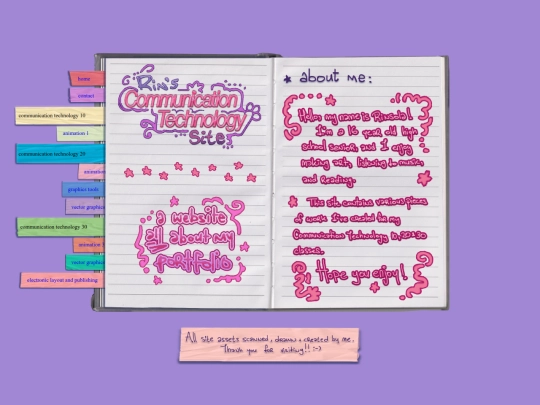 home
contact
communication technology 10
animation 1
communication technology 20
animation
graphics tools
vector graphics
communication technology 30
animation
vector graphics
electronic layout and publishing
Rin's
Communication
Technology
Site
a website
all about my
portfolio
about me:
Hello, my name is
I'm a 16 year old high
school senior, and I enjoy
making art, listening to music,
and Reading.
This site contains various pieces
of works I've created for my
Communication Technology 10, 20 + 30
classes.
Hope you enjoy!
All site assets scanned, drawn + created by me.
Thank you for visiting!! :-)